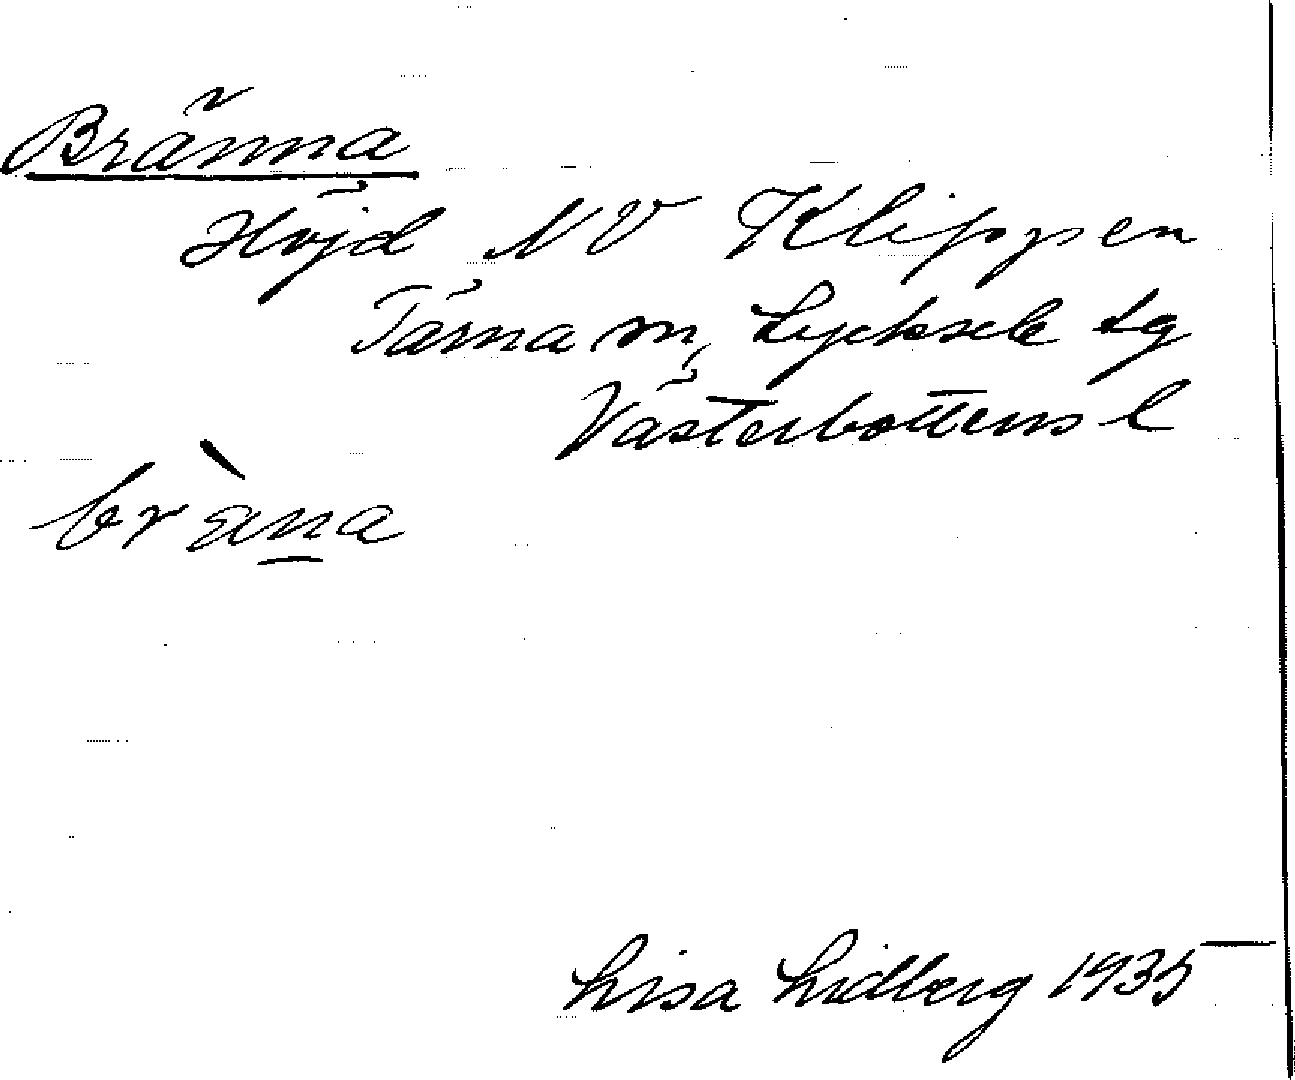 Bränna
Höjd NV Klippen
Tärna sn, Lycksele lg
Västerbottens l
bræ̀n̲a
Lisa Lidberg 1935